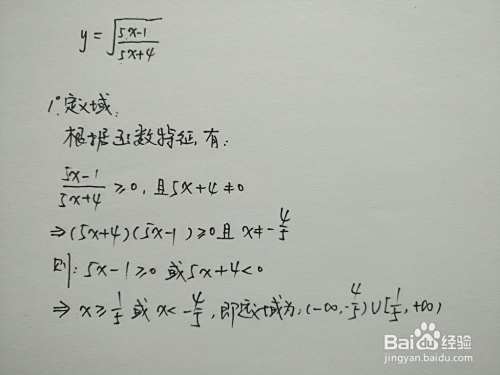 y = √((5x-1)/(5x+4))
1°.定义域:
根据函数特征,有:
(5x-1)/(5x+4) ≥0, 且5x+4≠0
⇒(5x+4)(5x-1)≥0且 x≠-4/5
则: 5x-1≥0 或5x+4<0
⇒ x≥1/5 或 x<-4/5, 即定义域为: (-∞,-4/5)∪[1/5,+∞)
Baidu经验
jingyan.baidu.com